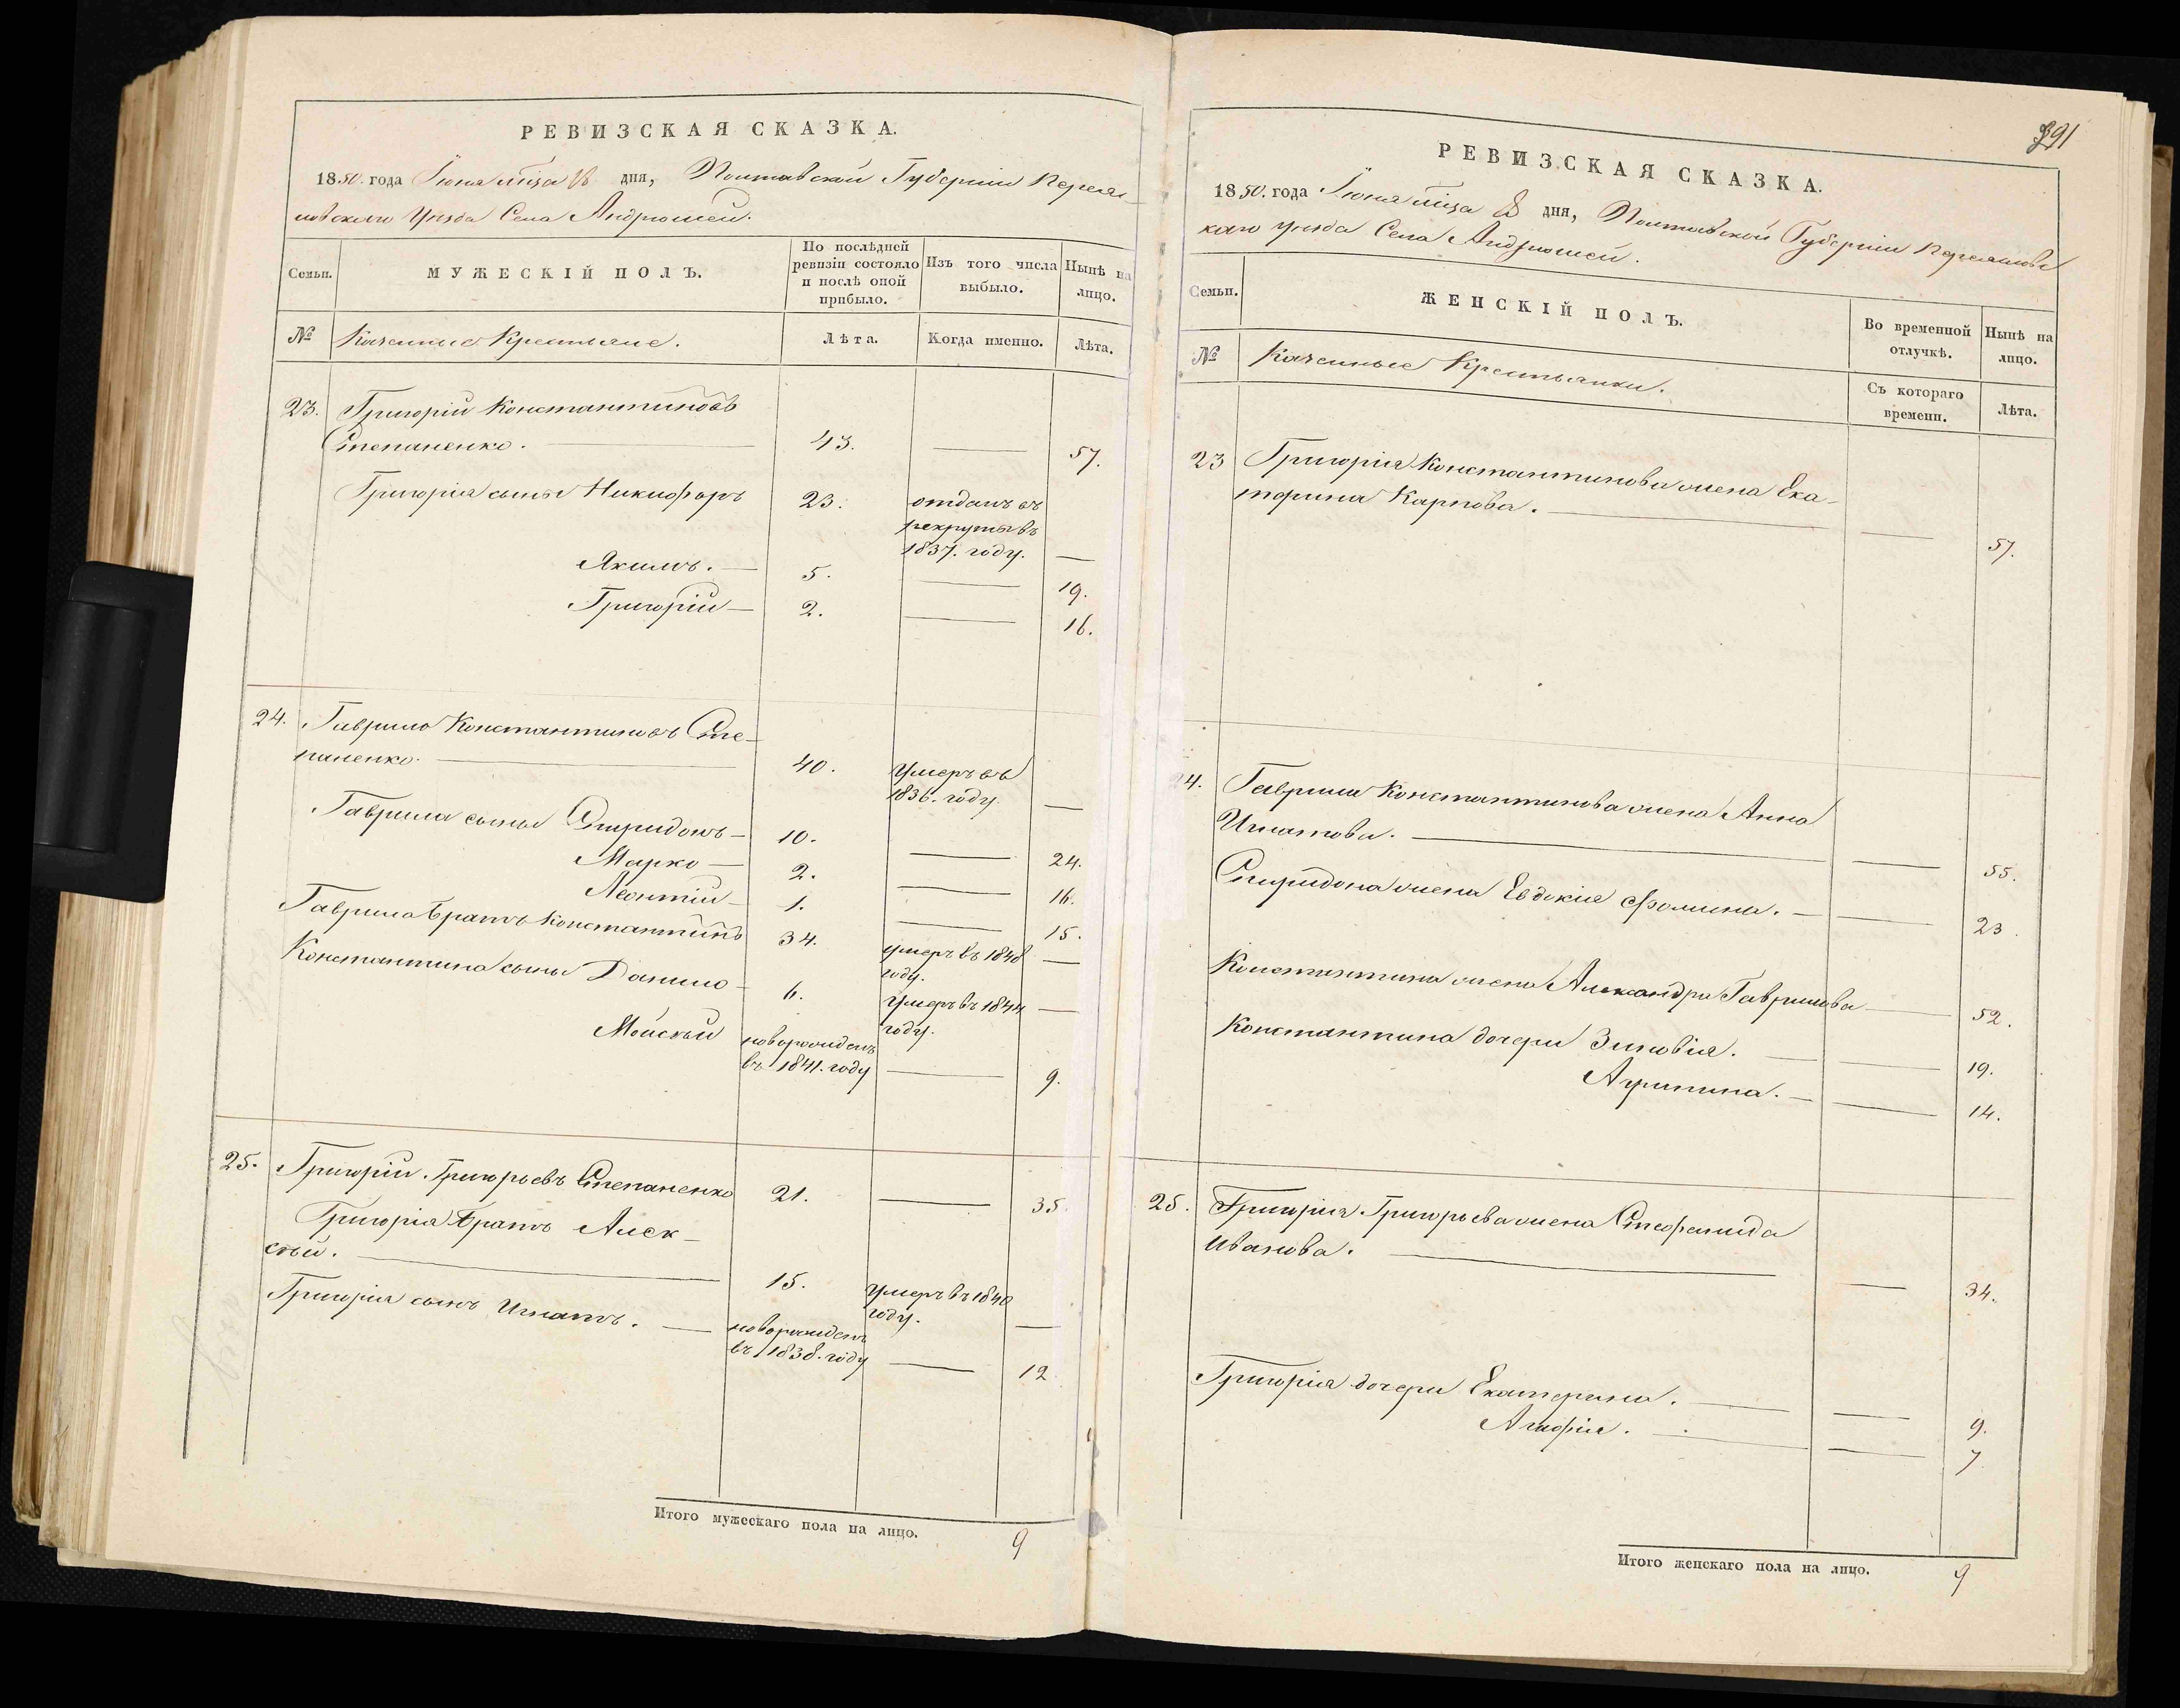 РЕВИЗСКАЯ СКАЗКА.
1850. года Іюня мѣсца дня, Полтавской Губерніи Переяс-
ловского Уѣзда Села Андрюшей.
Семьи.
МУЖЕСКІЙ ПОЛЪ.
По послѣдней
ревизіи состояло
и послѣ оной
прибыло.
Изъ того числа
выбыло.
Нынѣ на
лицо.
№
Казенные Крестьяне.
Лѣта.
Когда именно.
Лѣта.
23. Григорій Константиновъ
Степаненко. 43. 57.
Григорія сыны Никифоръ 23. отданъ въ
рекруты въ
1837. году.
Якимъ. 5. 19.
Григорій 2. 16.
24. Гаврило Константиновъ Сте-
паненко. 40. Умеръ въ
1836. году.
Гаврила сыны Спиридонъ 10. 24.
Марко 2. 16.
Леонтій 1. 15.
Гаврила братъ Константинъ 34. умеръ въ 1848
году.
Константина сыны Данило 6. Умеръ въ 1844
году.
Моисѣй новорожденъ
въ 1841. году 9.
25. Григорій Григорьевъ Степаненко 21. 35.
Григорія братъ Алек-
сѣй. 15. Умеръ въ 1840
году.
Григорія сынъ Игнатъ. новорожденъ
въ 1838. году 12
Итого мужескаго пола на лицо. 9
391
РЕВИЗСКАЯ СКАЗКА.
1850. года Іюня мѣсца дня, Полтавской Губерніи Переяловс
каго Уѣзда Села Андрюшей.
Семьи.
ЖЕНСКІЙ ПОЛЪ.
Во временной
отлучкѣ.
Нынѣ на
лицо.
№
Казенные Крестьянки.
Съ котораго
времени.
Лѣта.
23 Григорія Константинова жена Ека-
терина Карпова. 57.
24. Гаврила Константинова жена Анна
Игнатова. 55.
Спиридона жена Евдокія Фомина. 23.
Константина жена Александра Гаврилова 52.
Константина дочери Зиновія. 19.
Агрипина. 14.
25. Григорія Григорьева жена Стефанида
Иванова. 34.
Григорія дочери Екатерина. 9.
Агафія. 7
Итого женскаго пола на лицо. 9